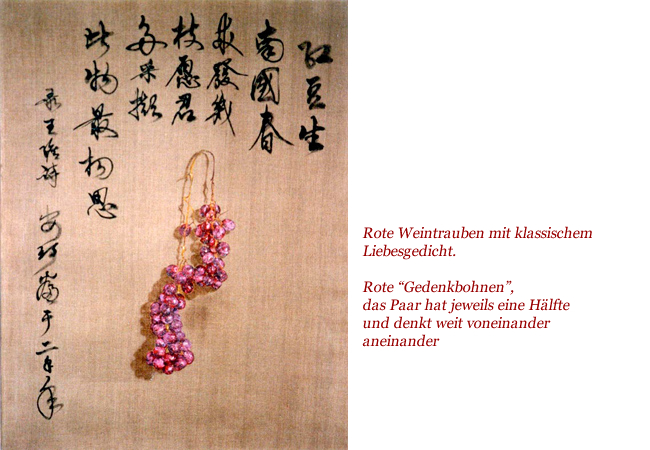 红豆生
南國春
來發幾
枝愿君
多采撷
此物最相思
录王维诗
于二千年
Rote Weintrauben mit klassischem
Liebesgedicht.
Rote “Gedenkbohnen”,
das Paar hat jeweils eine Hälfte
und denkt weit voneinander
aneinander